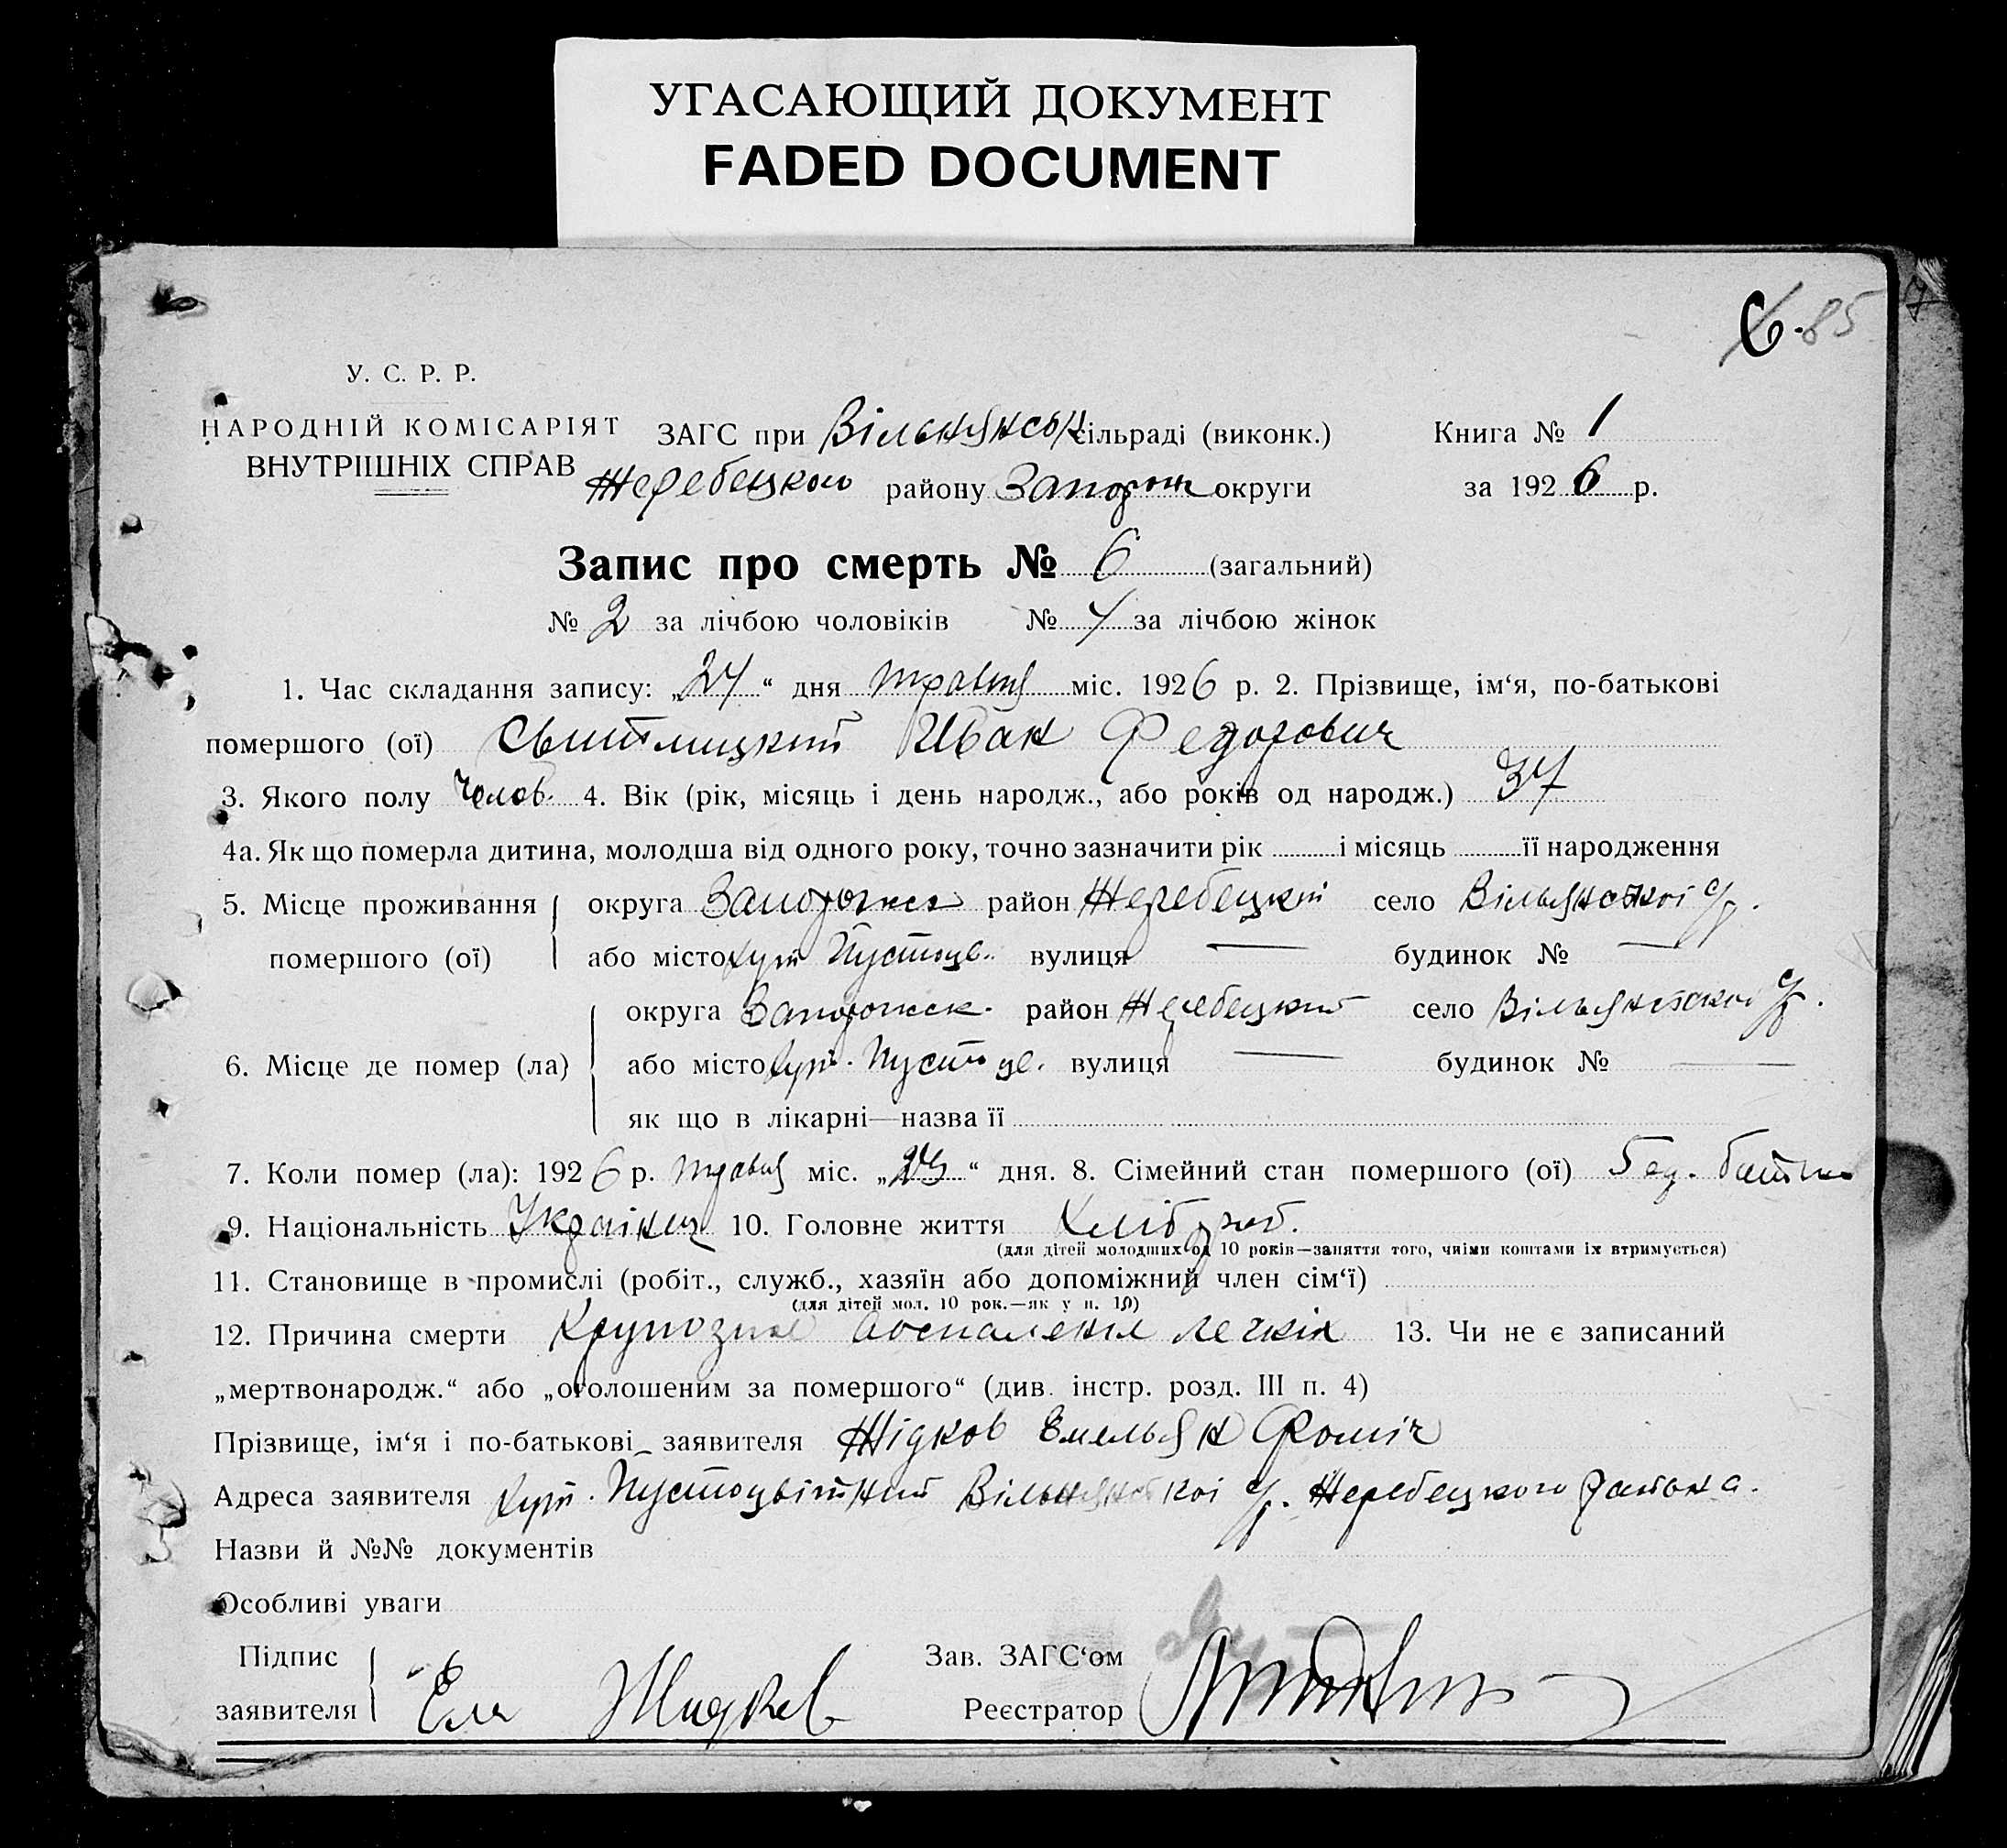 УГАСАЮЩИЙ ДОКУМЕНТ
FADED DOCUMENT
6. 85
У. С. Р. Р.
НАРОДНІЙ КОМІСАРІЯТ
ВНУТРІШНІХ СПРАВ
ЗАГС при Вільнянськ сільраді (виконк.) Книга № 1
Жеребецкого району Запорож округи за 1926 р.
Запис про смерть № 6 (загальний)
№ 2 за лічбою чоловіків № за лічбою жінок
1. Час складання запису: „24“ дня травня міс. 1926 р. 2. Прізвище, ім‘я, по-батькові
помершого (ої) Свитлицкий Иван Федорович
3. Якого полу Челов. 4. Вік (рік, місяць і день народж., або років од народж.) 37
4а. Як що померла дитина, молодша від одного року, точно зазначити рік і місяць її народження
5. Місце проживання округа район Жеребецкий село
помершого (ої) або місто хут Пустоцв. вулиця — будинок № —
округа Запорожск. район Жеребецкий село
6. Місце де помер (ла) або місто хут. Пустоцв. вулиця — будинок № —
як що в лікарні—назва її
7. Коли помер (ла): 1926 р. травня міс. „23“ дня. 8. Сімейний стан помершого (ої)
9. Національність Українец 10. Головне життя Хлібороб.
(для дітей молодших од 10 років—заняття того, чиїми коштами їх втримується)
11. Становище в промислі (робіт., служб., хазяїн або допоміжний член сім‘ї)
(для дітей мол. 10 рок.—як у п. 10)
12. Причина смерти Крупозное воспаления легкія 13. Чи не є записаний
„мертвонародж.“ або „оголошеним за помершого“ (див. інстр. розд. III п. 4)
Прізвище, ім‘я і по-батькові заявителя Жідков Емельян Фоміч
Адреса заявителя хут. Пустоцвітний Вільнянської с/р. Жеребецкого района.
Назви й №№ документів
Особливі уваги
Підпис Зав. ЗАГС‘ом
заявителя Ем Жидков Реєстратор